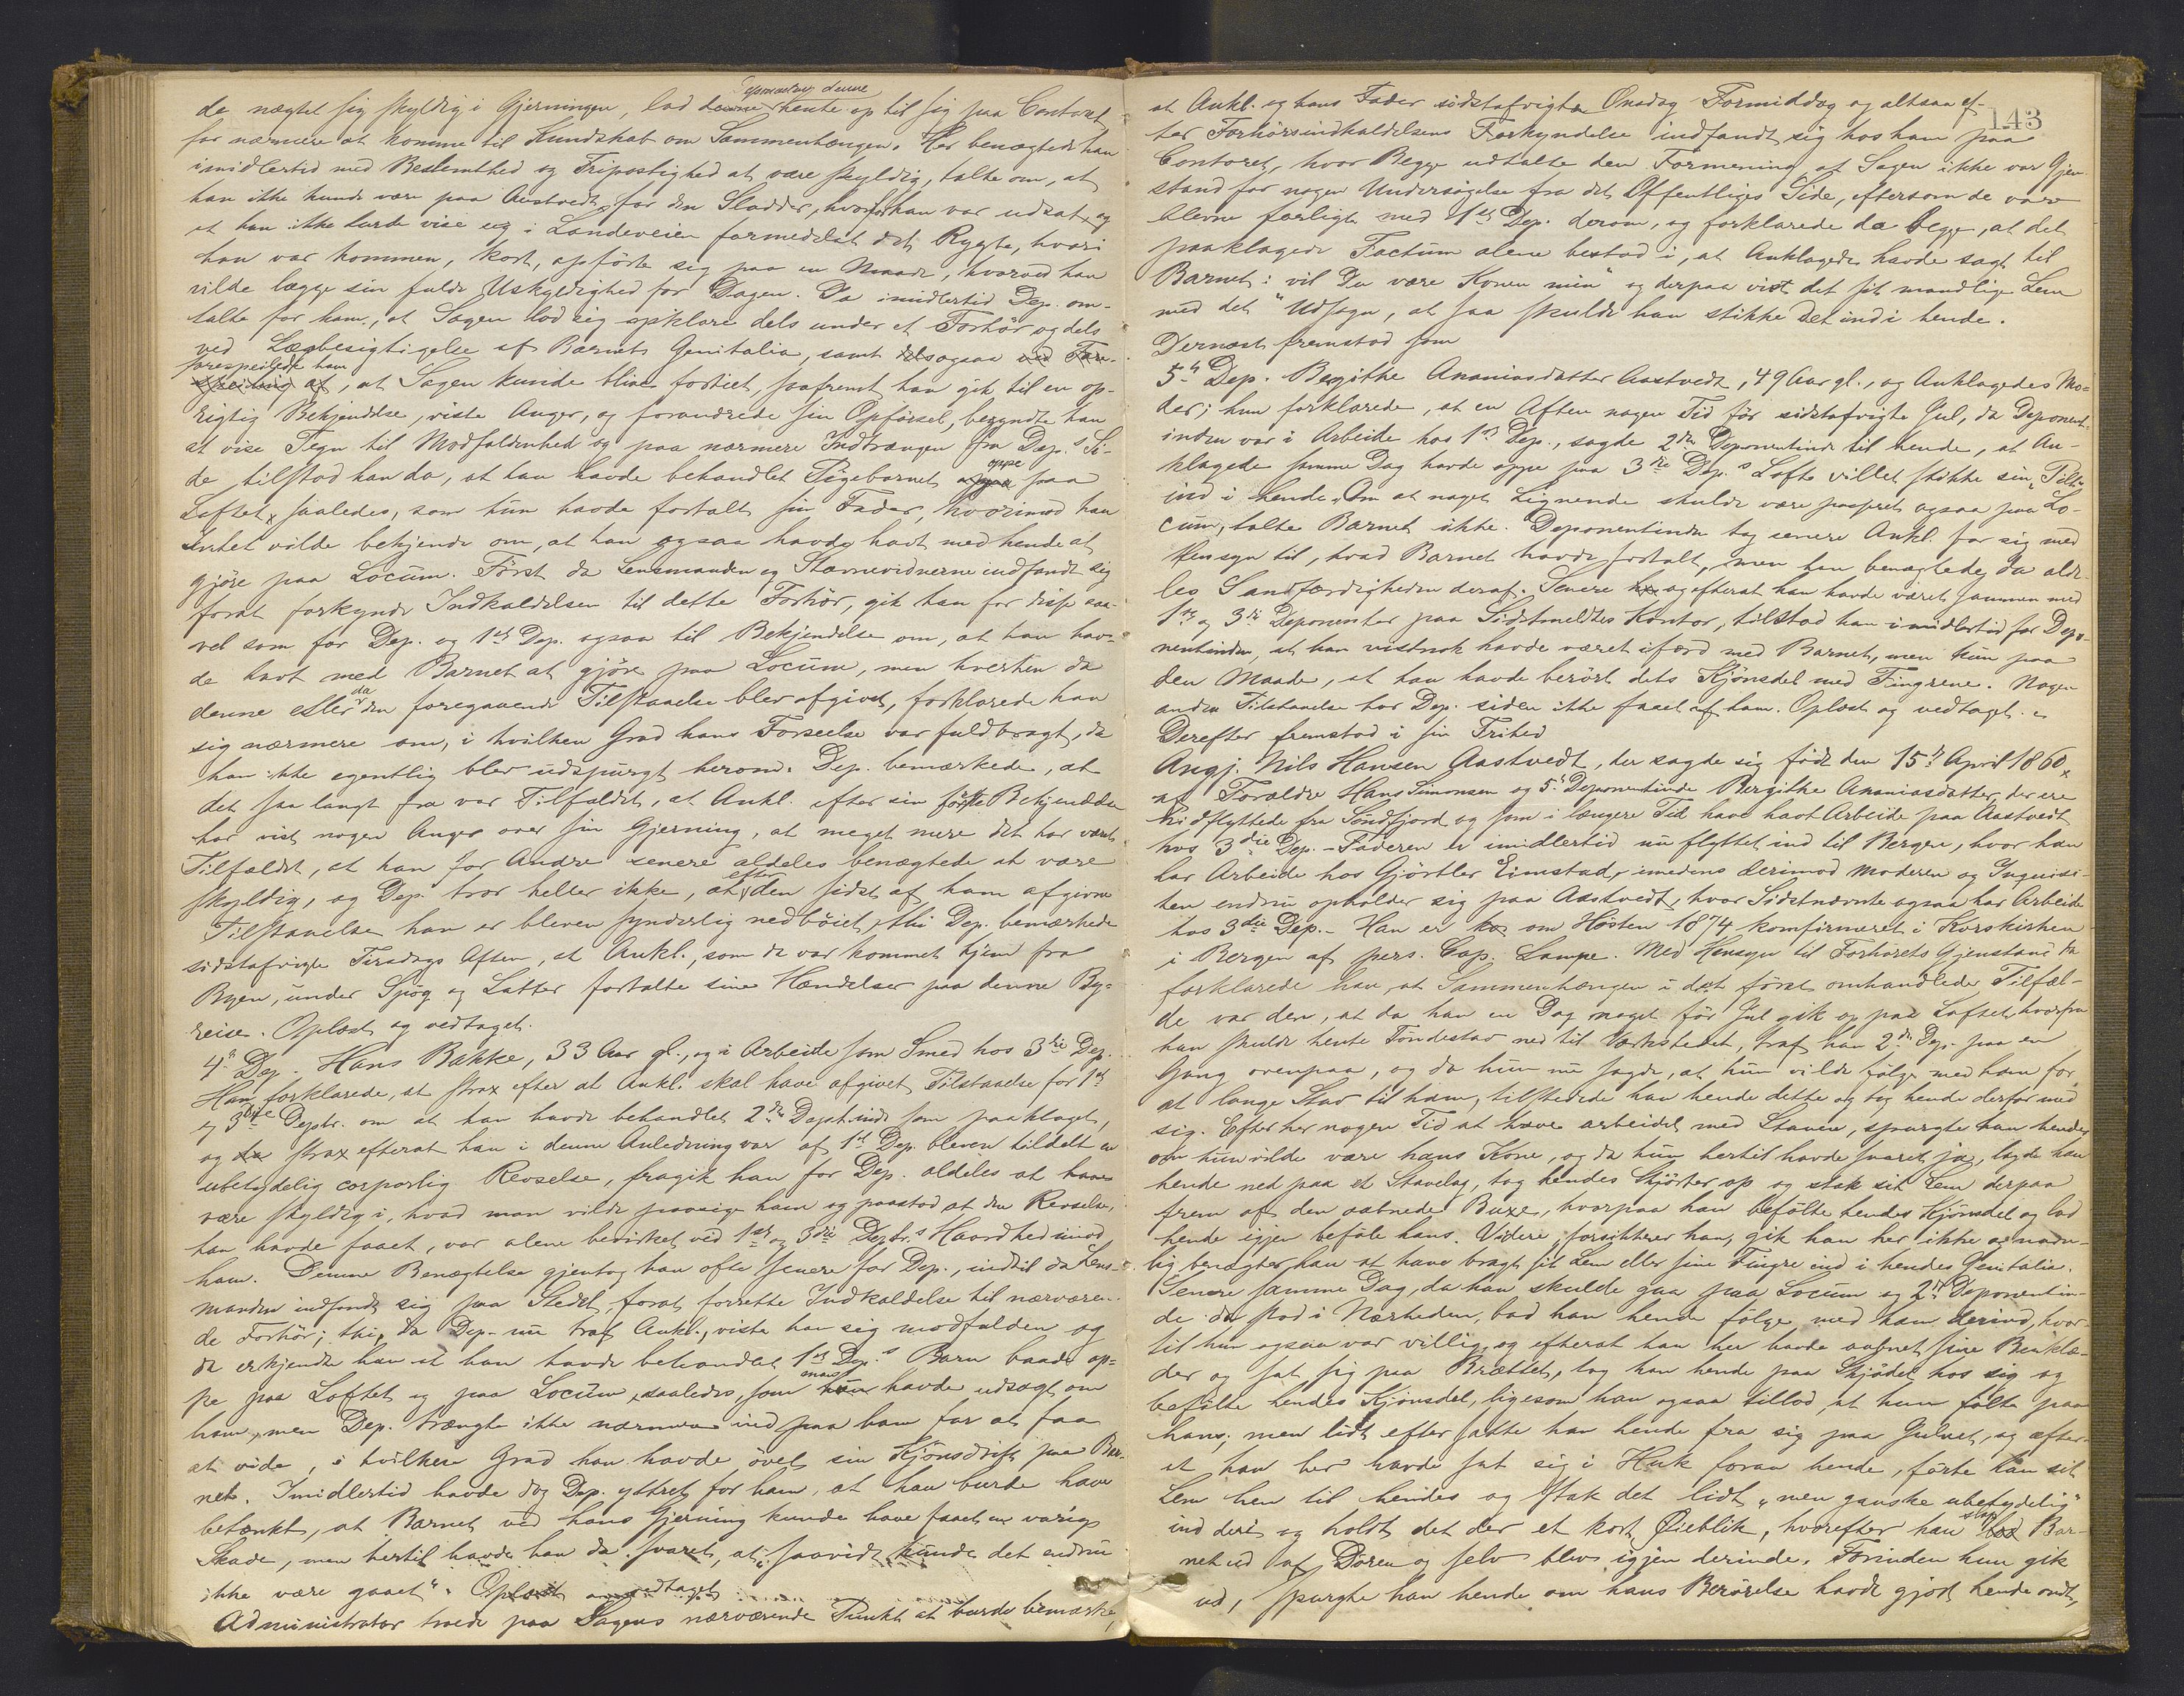 Deponenten denne
da nægtet sig skyldig i Gjerningen, lod denne hente op til sig paa Contoret
for nærmere at komme til Kundskab om Sammenhængen. Her benægtede han
imidlertid med Bestemthed og Fripostighed at være skyldig, talte om, at
han ikke kunde være paa Aastvedt for den Sladder, hvorfor han var udsat, og
at han ikke turde vise sig i Landeveien formedelst det Rygte, hvori
han var kommen, kort, opførte sig paa en Maade, hvorved han
vilde lægge sin fulde Uskyldighed for Dagen. Da imidlertid Dep. om-
talte for ham, at Sagen lod sig opklare dels under et Forhør og dels
ved Lægbesigtigelse af Barnets Genitalia, samt dels ogsaa ved Fore-
forespeilede ham
speiling af, at Sagen kunde blive fortiet, saafremt han gik til en op-
rigtig Bekjendelse, viste Anger, og forandrede sin Opførsel, begyndte han
at vise Tegn til Modfaldenhed og paa nærmere Indtrængen fra Dep.s Si-
de tilstod han da, at han havde behandlet Pigebarnet oppe paa
Loftet saaledes, som hun havde fortalt sin Fader, hvorimod han
intet vilde bekjende om, at han ogsaa havde havt med hende at
gjøre paa Locum. Først da Lensmanden og Stævnevidnerne indfandt sig
forat forkynde Indkaldelsen til dette Forhør, gik han for disse saa-
vel som for Dep. og 1ste Dep. ogsaa til Bekjendelse om, at han hav-
de havt med Barnet at gjøre paa Locum, men hverken da
denne eller da den foregaaende Tilstaaelse blev afgivet, forklarede han
sig nærmere om, i hvilken Grad hans Forseelse var fuldbragt, da
han ikke egentlig blev udspurgt herom. Dep. bemærkede, at
det saa langt fra var Tilfældet, at Ankl. efter sin første Bekjendelse
har vist nogen Anger over sin Gjerning, at meget mere det har været
Tilfældet, at han for Andre senere aldeles benægtede at være
skyldig, og Dep. tror heller ikke, at efter den sidst af ham afgivne
Tilstaaelse han er bleven synderlig nedbøiet, thi Dep. bemærkede
sidstafvigte Tirsdags Aften, at Ankl., som da var kommet hjem fra
Byen, under Spøg og Latter fortalte sine Hændelser paa denne By-
reise. Oplæst og vedtaget.
4de Dep. Hans Bakke, 33 Aar gl., og i Arbeide som Smed hos 3die Dep.
Han forklarede, at strax efter at Ankl. skal have afgivet Tilstaaelse for 1ste
og 3die Deptr. om at han havde behandlet 2den Deptinde som paaklaget,
og da strax efterat han i denne Anledning var af 1ste Dep. bleven tildelt en
ubetydelig corporlig Revselse, fragik han for Dep. aldeles at have
være skyldig i, hvad man vilde paasige ham og paastod at den Revselse,
han havde faaet, var alene bevirket ved 1ste og 3die Deptr.s Haardhed imod
ham. Denne Benægtelse gjentog han ofte senere for Dep., indtil da Lens-
manden indfandt sig paa Stedet, forat forrette Indkaldelse til nærværen-
de Forhør; thi, da Dep. nu traf Ankl., viste han sig modfalden og
da erkjendte han at han havde behandlet 1ste Dep.s Barn baade op-
pe paa Loftet og paa Locum, saaledes, som man havde udsagt om
ham, men Dep. trængte ikke nærmere ind paa ham for at faa
at vide, i hvilken Grad han havde øvet sin Kjønsdrift paa Bar-
net. Imidlertid havde dog Dep. yttret for ham, at han burde have
betænkt, at Barnet ved hans Gjerning kunde have faaet en varig
Skade, men hertil havde han da svaret, at, „saavidt kunde det endnu
ikke være gaaet". Oplæst og vedtaget
Administrator troede paa Sagens nærværende Punkt at burde bemærke,
143
at Ankl. og hans Fader sidstafvigte Onsdag Formiddag og altsaa ef-
ter Forhørsindkaldelsens Forkyndelse indfandt sig hos ham paa
Contoret, hvor Begge udtalte den Formening at Sagen ikke var Gjen-
stand for nogen Undersøgelse fra det Offentliges Side, eftersom de vare
blevne forligte med 1ste Dep. derom, og forklarede da begge, at det
paaklagede Factum alene bestod i, at Anklagede havde sagt til
Barnet: vil Du være Konen min" og derpaa vist det sit mandlige Lem
med det Udsagn, at saa skulde han stikke det ind i hende.
Dernæst fremstod som
5te Dep. Bergithe Ananiasdatter Aastvedt, 49 Aar gl., og Anklagedes Mo-
der; hun forklarede, at en Aften nogen Tid før sidstafvigte Jul, da Deponent-
inden var i Arbeide hos 1ste Dep., sagde 2den Deponentinde til hende, at An-
klagede samme Dag havde oppe paa 3die Dep.s Loft villet stikke sin „Til"
ind i hende. Om at noget Lignende skulde være passeret ogsaa paa Lo-
cum, talte Barnet ikke. Deponentinden tog senere Ankl. for sig med
Hensyn til, hvad Barnet havde fortalt, men han benægtede da alde-
les Sandfærdigheden deraf. Senere og efterat han havde været sammen med
1ste og 3die Deponenter paa Sidstmeldtes Kontor, tilstod han imidlertid for Depo-
nentinden, at han vistnok havde været ifærd med Barnet, men kun paa
den Maade, at han havde berørt dets Kjønsdel med Fingrene. Nogen
anden Tilstaaelse har Dep. siden ikke faaet af ham. Oplæst og vedtaget.
Derefter fremstod i sin Frihed
Angj. Nils Hansen Aastvedt, der sagde sig født den 15de April 1860
af Forældre Hans Simonsen og 5te Deponentinde Bergithe Ananiasdatter, der ere
hidflyttede fra Søndfjord og som i længere Tid have havt Arbeide paa Aastvedt
hos 3die Dep. - Faderen er imidlertid nu flyttet ind til Bergen, hvor han
har Arbeide hos Gjørtler Eimstad, imedens derimod Moderen og Inquisi-
ten endnu opholder sig paa Aastvedt, hvor Sidstnævnte ogsaa har Arbeide
hos 3die Dep. - Han er om Høsten 1874 komfirmeret i Korskirken
i Bergen af pers. Cap. Lampe. Med Hensyn til Forhørets Gjenstand
forklarede han, at Sammenhængen i det først omhandlede Tilfæl-
de var den, at da han en Dag noget før Jul gik op paa Loftet, hvorfra
han skulde hente Tøndestav ned til Værkstedet, traf han 2den Dep. paa en
Gang ovenpaa, og da hun nu sagde, at hun vilde følge med ham for
at lange Stav til ham, tilstedede han hende dette og tog hende derfor med
sig. Efter her nogen Tid at have arbeidet med Staven, spurgte han hende,
om hun vilde være hans Kone, og da hun hertil havde svaret ja, lagde han
hende ned paa et Stavelag, tog hendes Skjørter op og stak sit Lem derpaa
frem af den aabnede Buxe, hvorpaa han befølte hendes Kjønsdel og lod
hende igjen beføle hans. Videre, forsikkrer han, gik han her ikke og navn-
lig benægter han at have bragt sit Lem eller sine Fingre ind i hendes Genitalia.
Senere samme Dag, da han skulde gaa paa Locum og 2den Deponentin-
de da stod i Nærheden, bad han hende følge med ham derind, hvor-
til hun ogsaa var villig, og efterat han her havde aabnet sine Benklæ-
der og sat sig paa Brættet, tog han hende paa Skjødet hos sig og
befølte hendes Kjønsdel, ligesom han ogsaa tillod, at hun følte paa
hans; men lidt efter satte han hende fra sig paa Gulvet, og efter-
at han her havde sat sig i Huk foran hende, førte han sit
Lem hen til hendes og stak det lidt „men ganske ubetydelig"
ind deri og holdt det der et kort Øieblik, hvorefter han slap Bar-
net ud af Døren og selv blev igjen derinde. Forinden hun gik
ud, spurgte han hende om hans Berørelse havde gjort hende ondt,